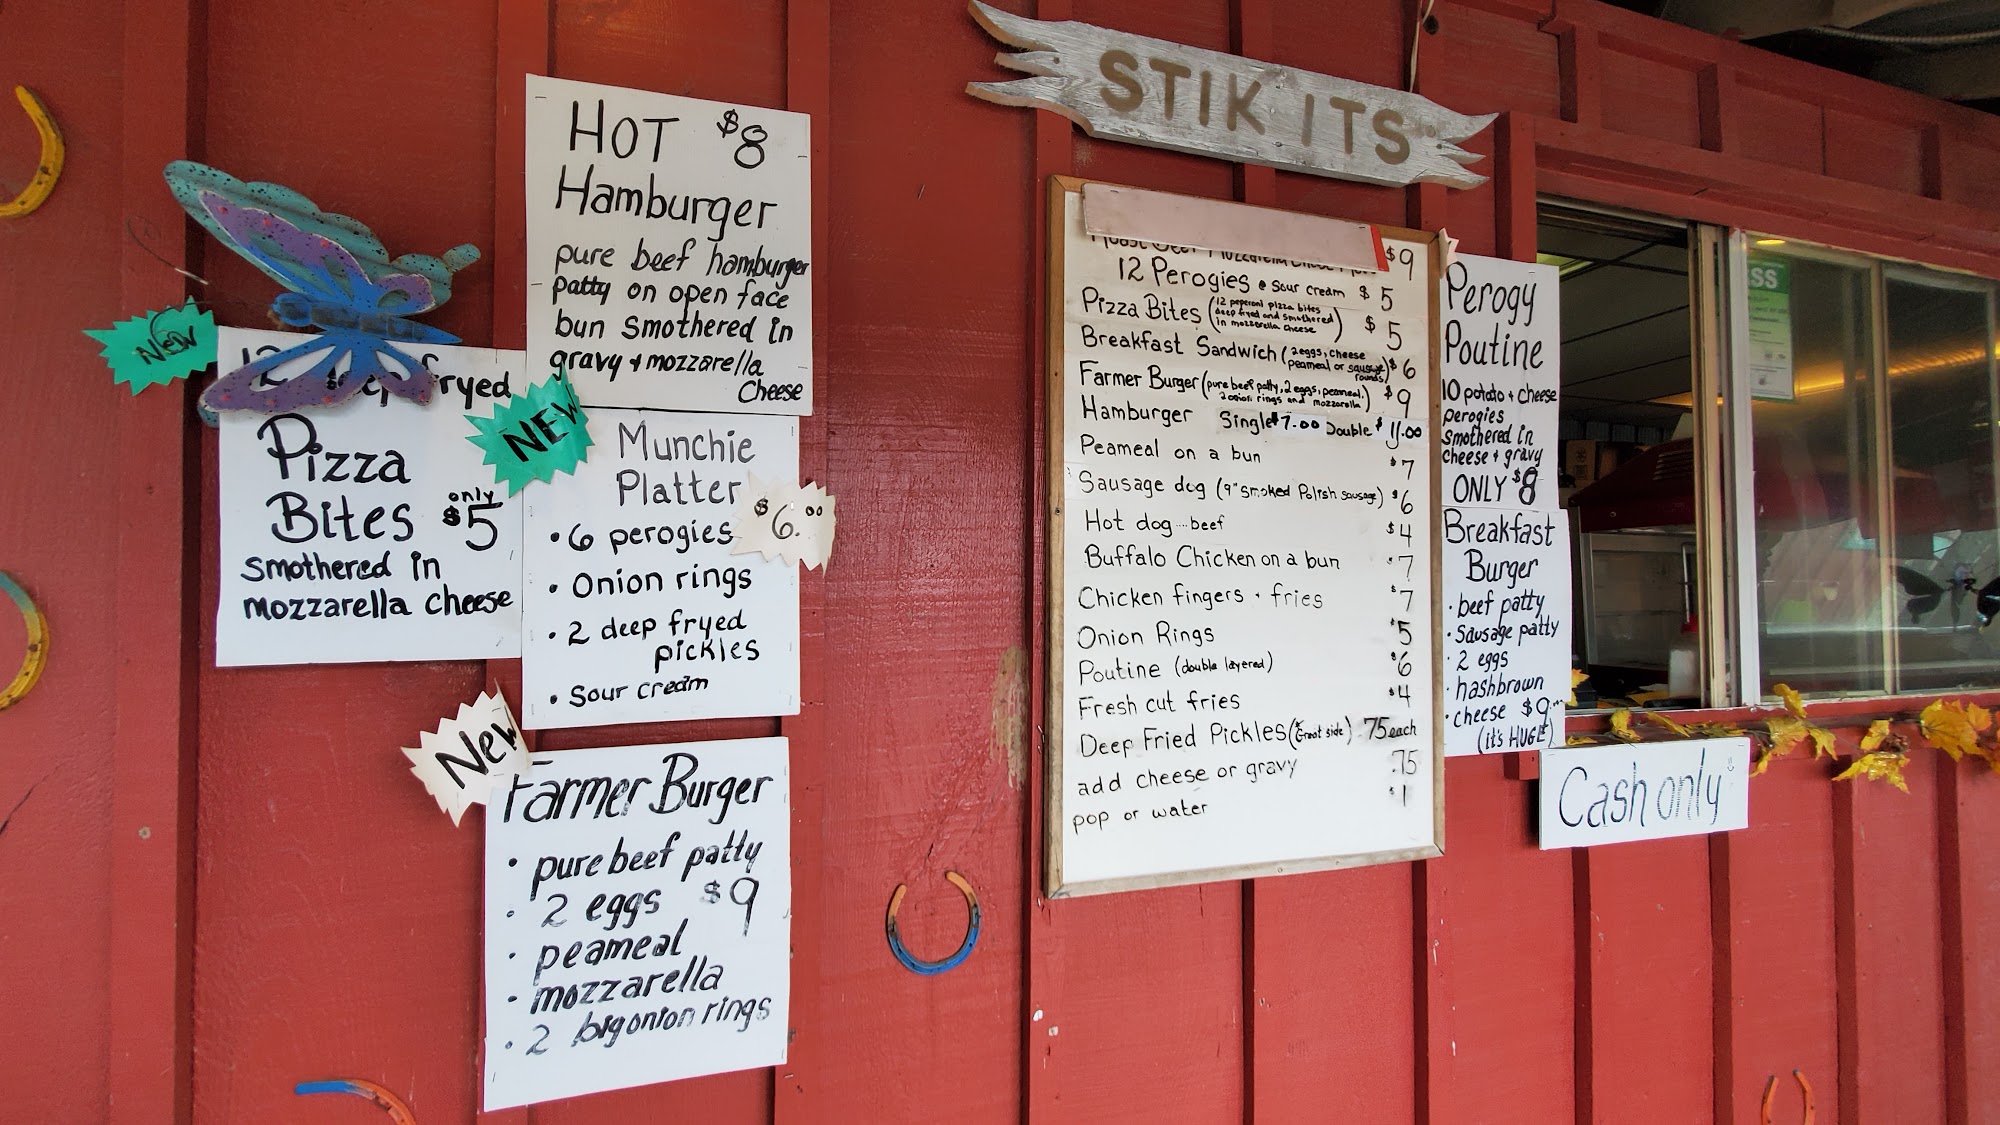 NEW
12 deep fryed
Pizza
Bites only $5
smothered in
mozzarella cheese
HOT $8
Hamburger
pure beef hamburger
patty on open face
bun smothered in
gravy + mozzarella
Cheese
NEW
Munchie
Platter
$6.00
• 6 perogies
• Onion rings
• 2 deep fryed
pickles
• Sour cream
New
Farmer Burger
• pure beef patty
• 2 eggs $9
• peameal
• mozzarella
• 2 big onion rings
STIK ITS
$9
12 Perogies @ sour cream $5
Pizza Bites (12 peperoni pizza bites deep fryed and smothered in mozzarella cheese) $5
Breakfast Sandwich (2 eggs, cheese peameal or sausage rounds) $6
Farmer Burger (pure beef patty, 2 eggs, peameal, 2 onion rings and mozzarella) $9
Hamburger Single $7.00 Double $11.00
Peameal on a bun $7
Sausage dog (9" smoked Polish sausage) $6
Hot dog....beef $4
Buffalo Chicken on a bun $7
Chicken fingers + fries $7
Onion Rings $5
Poutine (double layered) $6
Fresh cut fries $4
Deep Fried Pickles (Great side) .75 each
add cheese or gravy .75
pop or water $1
Perogy
Poutine
10 potato + cheese
perogies
smothered in
cheese + gravy
ONLY $8
Breakfast
Burger
• beef patty
• sausage patty
• 2 eggs
• hashbrown
• cheese $9
(it's HUGE)
Cash only